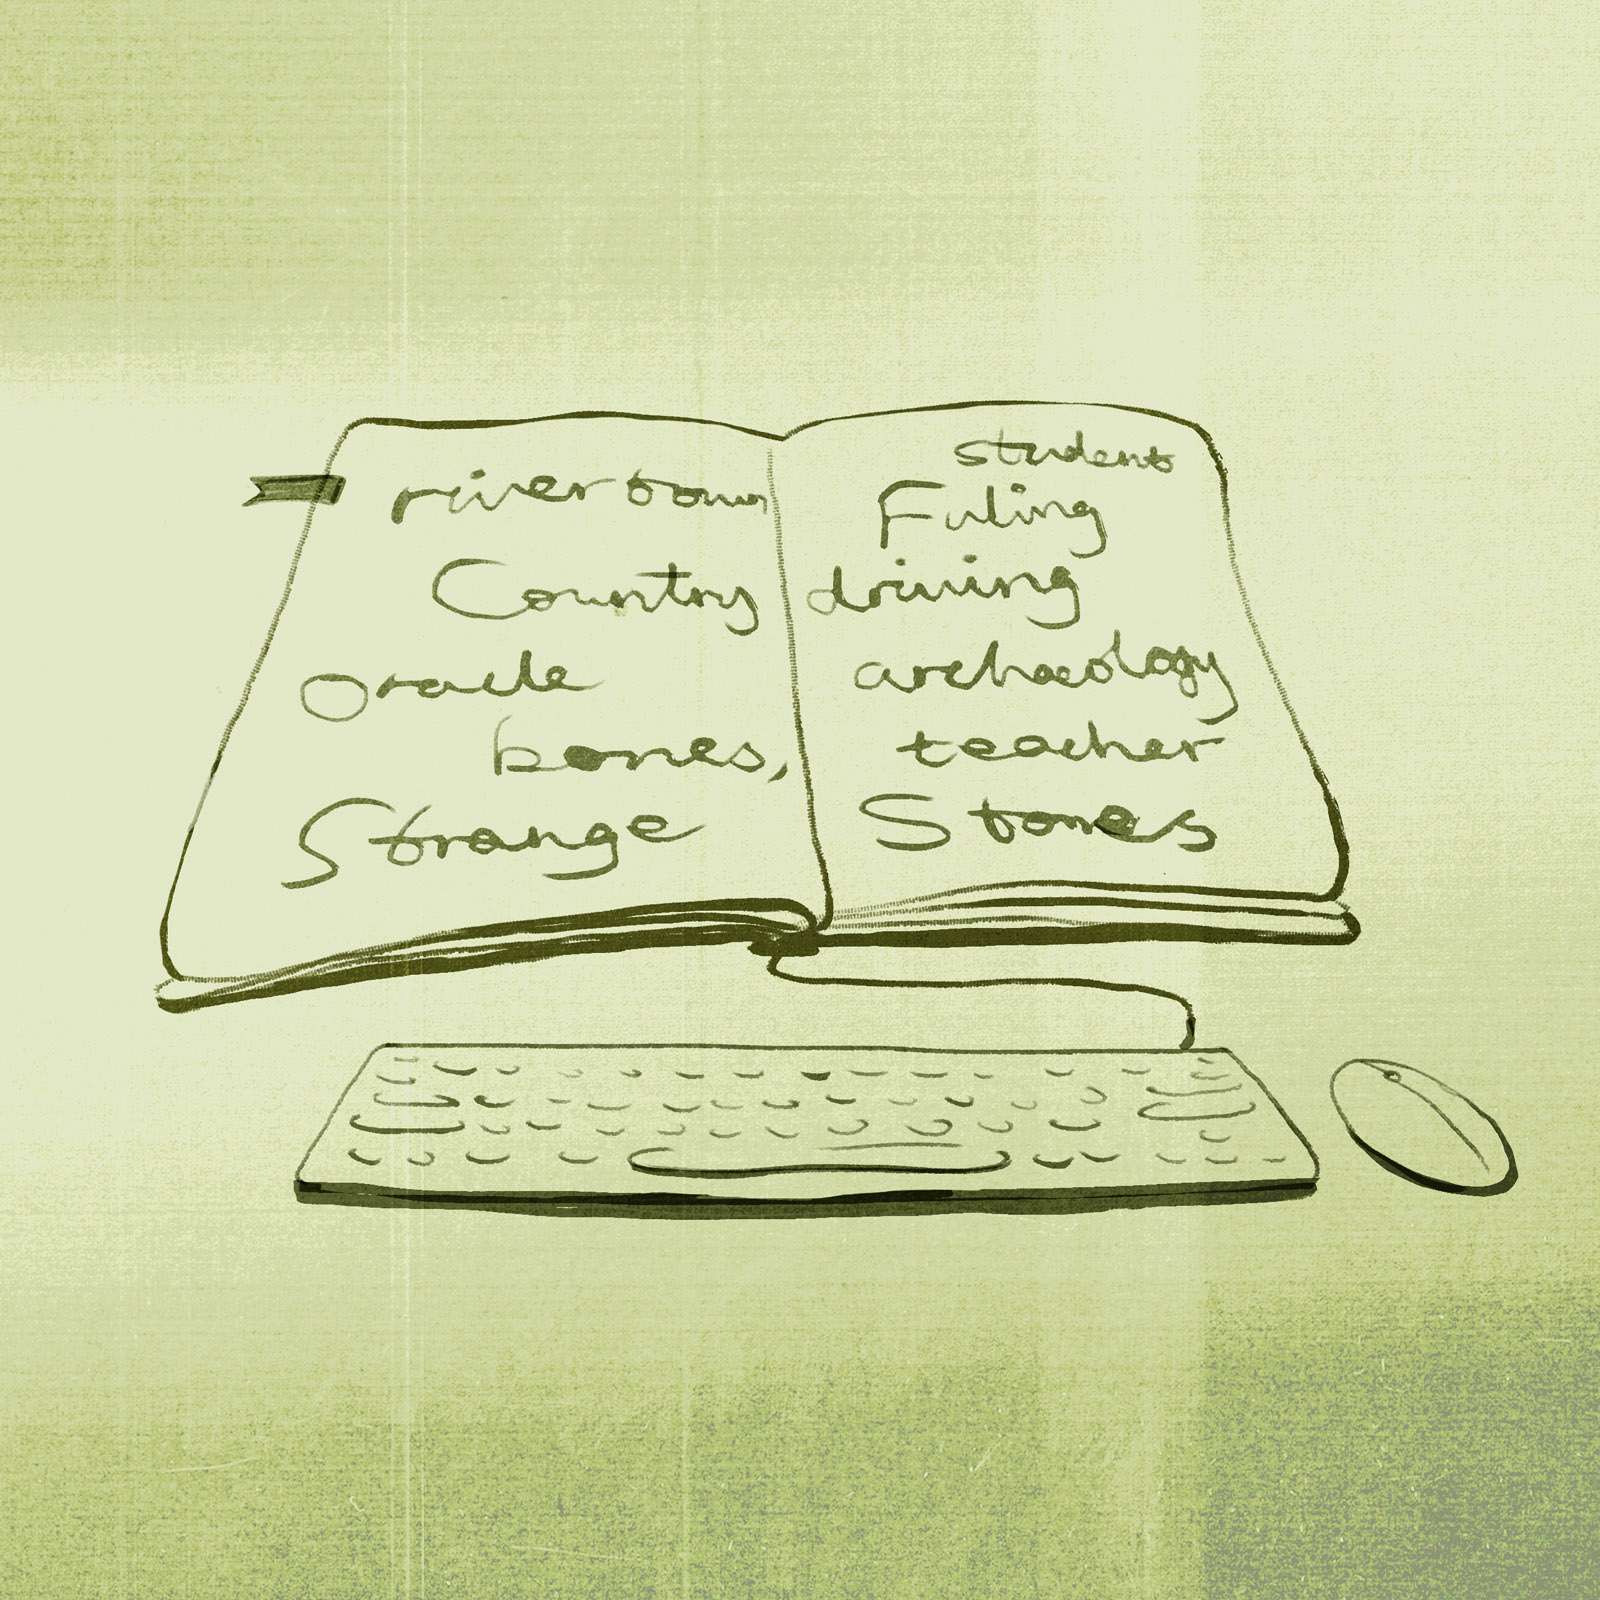 river town
Country
Oracle
bones,
Strange
student
Fuling
driving
archaeology
teacher
Stones